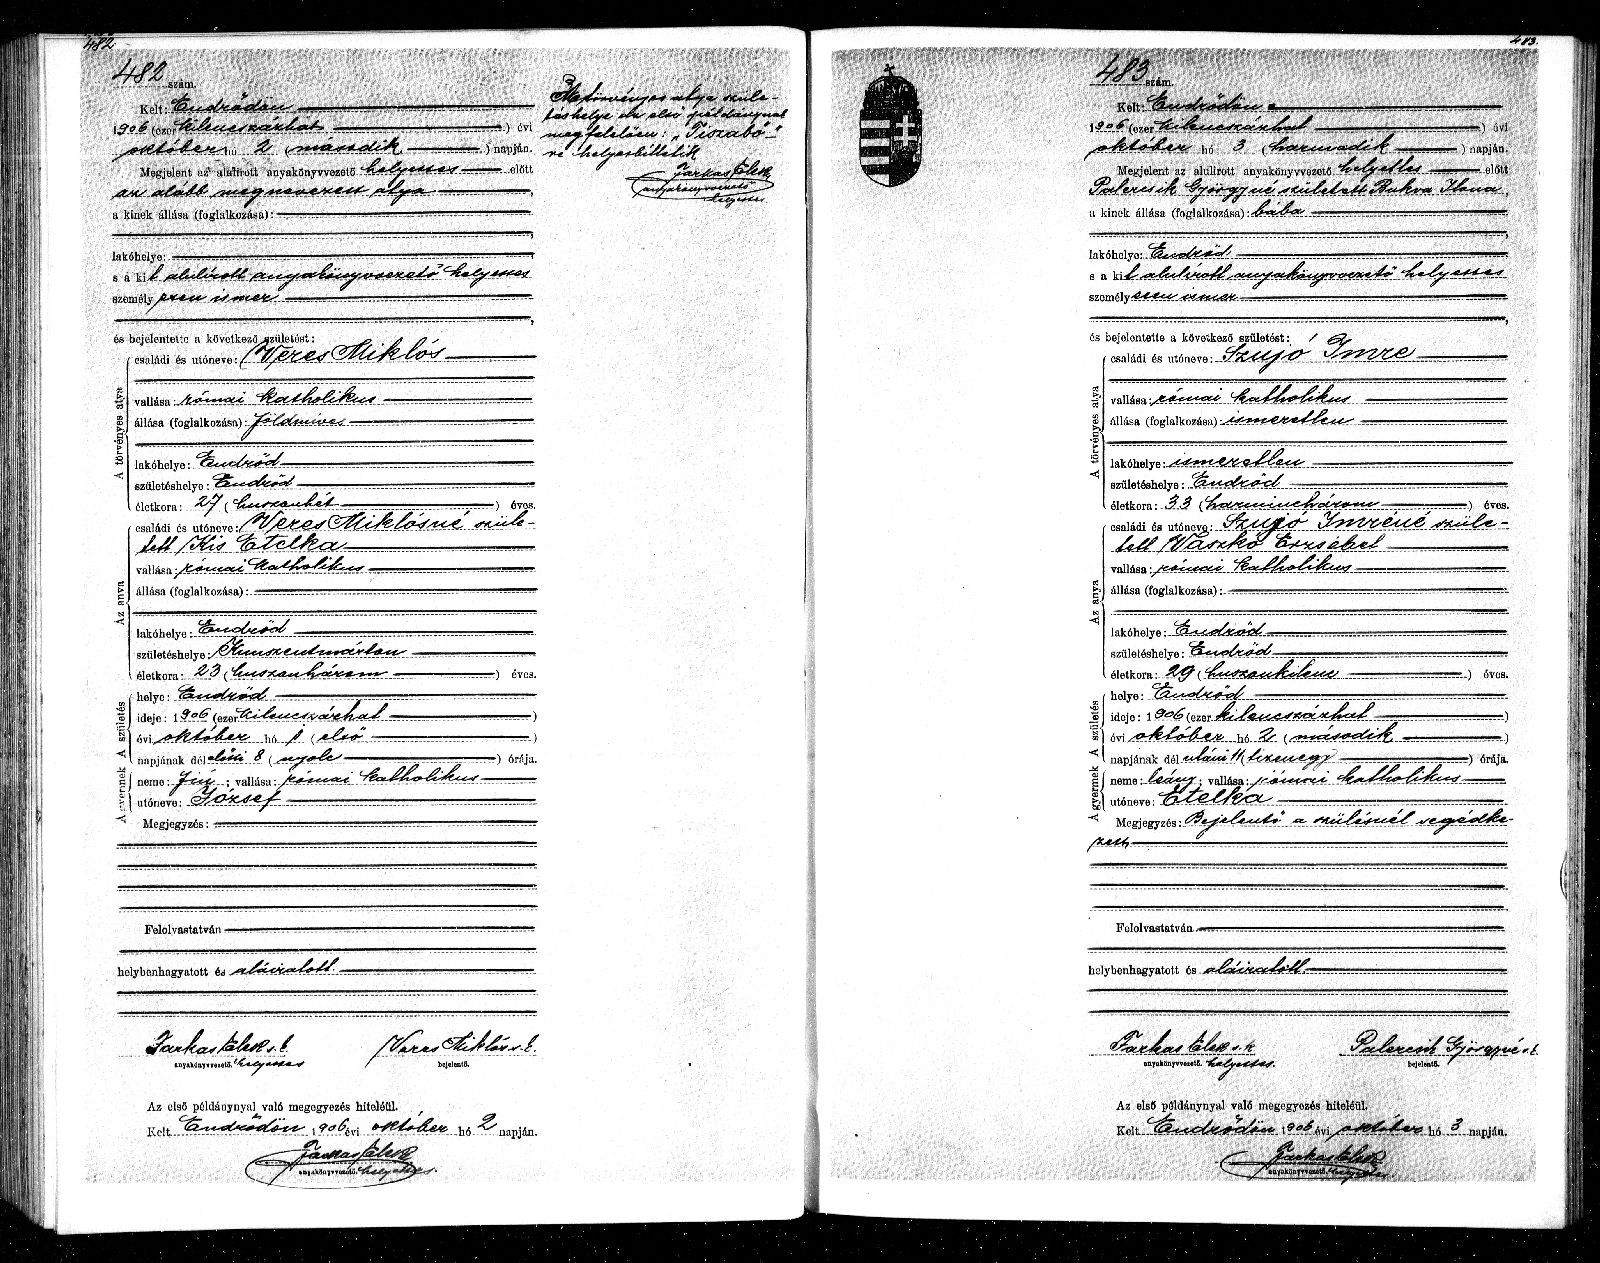 482
482 szám.
Kelt: Endrődön
1906 (ezer kilencszázhat) évi
október hó 2 (második) napján.
Megjelent az alulirott anyakönyvvezető helyettes előtt
az alább megnevezett atya,
a kinek állása (foglalkozása):
lakóhelye:
s a kit alulírott anyakönyvvezető helyettes
személyesen ismer
és bejelentette a következő születést:
A törvényes atya
családi és utóneve: Veres Miklós
vallása: római katholikus
állása (foglalkozása): földmíves
lakóhelye: Endrőd
születéshelye: Endrőd
életkora: 27 (huszonhét) éves.
Az anya
családi és utóneve: Veres Miklósné szüle-
tett Kis Etelka
vallása: római katholikus
állása (foglalkozása):
lakóhelye: Endrőd
születéshelye: Kunszentmárton
életkora: 23 (huszonhárom) éves.
A születés
helye: Endrőd
ideje: 1906 (ezer kilencszázhat)
évi október hó 1 (első)
napjának dél előtti 8 (nyolc) órája.
A gyermek
neme: fiú; vallása: római katholikus
utóneve: József
Megjegyzés:
Felolvastatván
helybenhagyatott és aláiratott.
Farkas Elek s. k.
anyakönyvvezető helyettes
Veres Miklós s. k.
bejelentő.
Az első példánynyal való megegyezés hiteléül.
Kelt Endrődön 1906 évi október hó 2 napján.
Farkas Elek
anyakönyvvezető helyettes.
A törvényes atya szüle-
téshelye az első példánynak
megfelelően: "Tiszabő"-
re helyesbíttetik
Farkas Elek
anyakönyvvezető
helyettes
483.
483 szám.
Kelt: Endrődön
1906 (ezer kilencszázhat) évi
október hó 3 (harmadik) napján.
Megjelent az alulirott anyakönyvvezető helyettes előtt
Palercsik Györgyné született Bukva Ilona,
a kinek állása (foglalkozása): bába
lakóhelye: Endrőd
s a kit alulírott anyakönyvvezető helyettes
személyesen ismer
és bejelentette a következő születést:
A törvényes atya
családi és utóneve: Szujó Imre
vallása: római katholikus
állása (foglalkozása): ismeretlen
lakóhelye: ismeretlen
születéshelye: Endrőd
életkora: 33 (harminchárom) éves.
Az anya
családi és utóneve: Szujó Imréné szüle-
tett Vaszkó Erzsébet
vallása: római katholikus
állása (foglalkozása):
lakóhelye: Endrőd
születéshelye: Endrőd
életkora: 29 (huszonkilenc) éves.
A születés
helye: Endrőd
ideje: 1906 (ezer kilencszázhat)
évi október hó 2 (második)
napjának dél utáni 11 (tizenegy) órája.
A gyermek
neme: leány; vallása: római katholikus
utóneve: Etelka
Megjegyzés: Bejelentő a szülésnél segédke-
zett,
Felolvastatván
helybenhagyatott és aláiratott.
Farkas Elek s. k.
anyakönyvvezető helyettes.
Palercsik Györgyné s. k.
bejelentő.
Az első példánynyal való megegyezés hiteléül.
Kelt Endrődön 1906 évi október hó 3 napján.
Farkas Elek
anyakönyvvezető helyettes